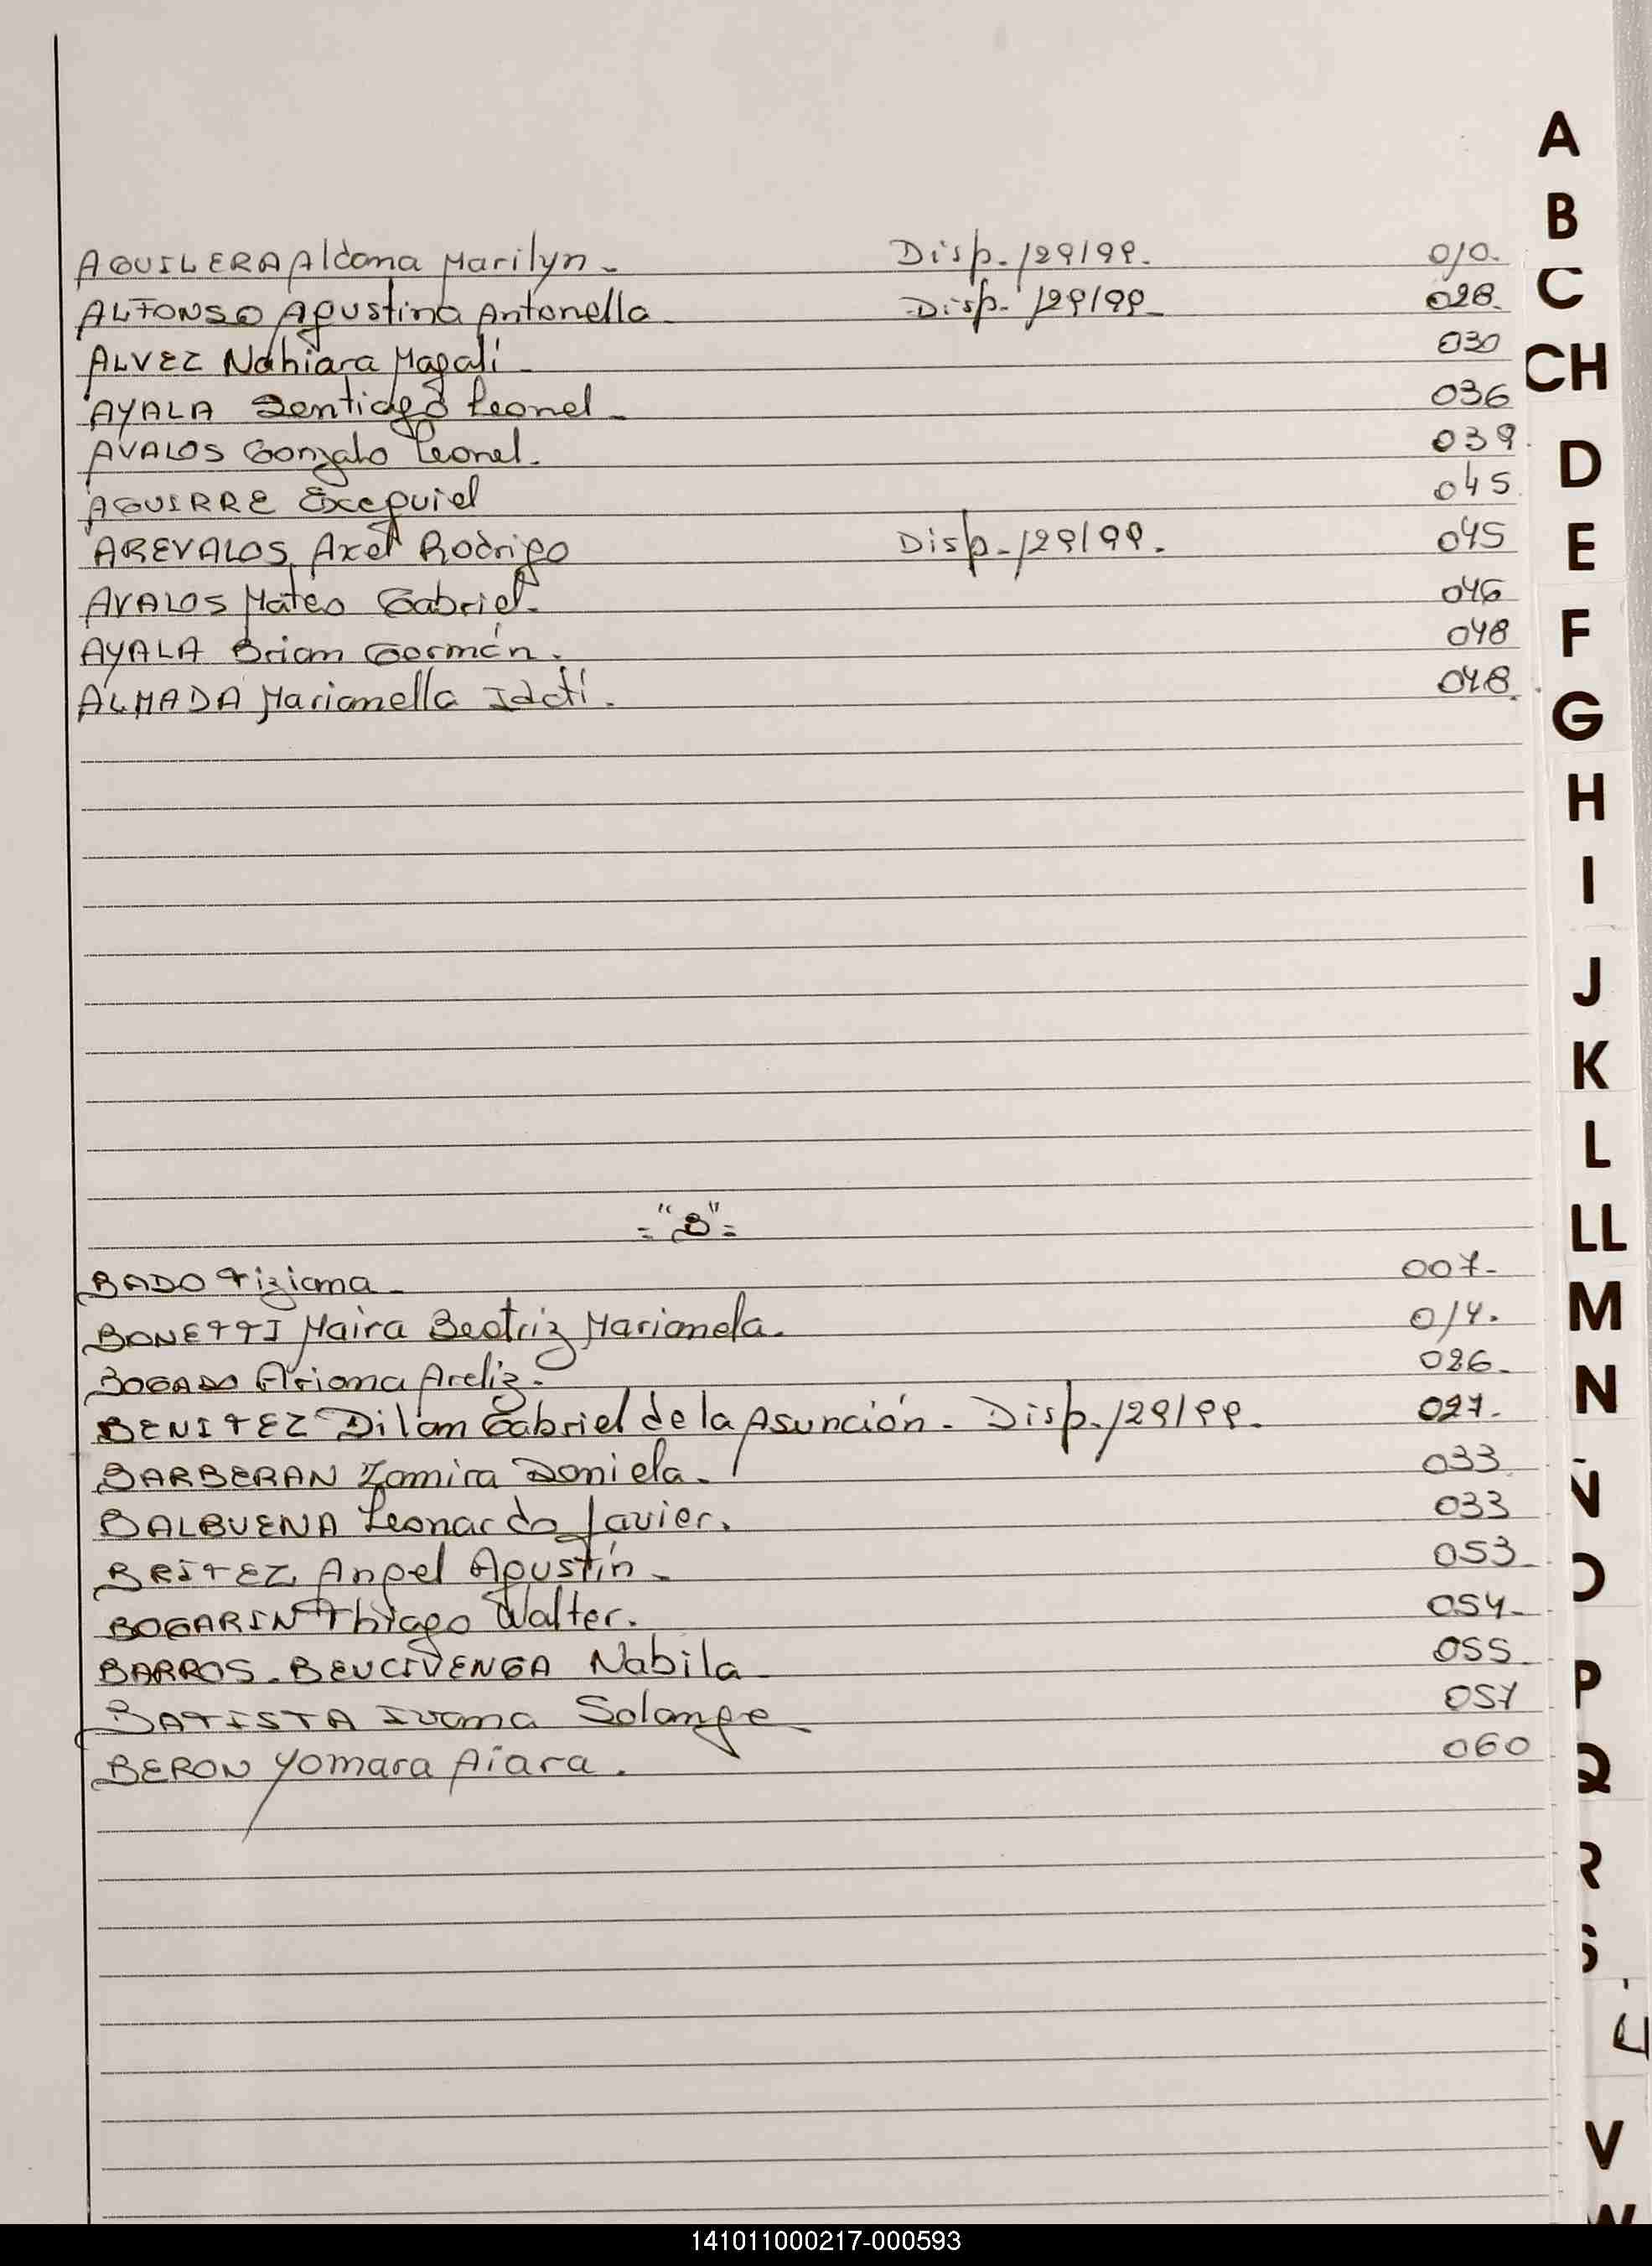 AGUILERA Aldana Marilyn. Disp. 129/99. 010.
ALFONSO Agustina Antonella. Disp. 129/99. 028.
ALVEZ Nahiara Magalí. 030
AYALA Santiago Leonel. 036
AVALOS Gonzalo Leonel. 039.
AGUIRRE Exequiel 045
AREVALOS, Axel Rodrigo Disp. 129/99. 045
AVALOS Mateo Gabriel. 046
AYALA Brian Germán. 048
ALMADA Marianella Idatí. 048.
="B"=
BADO Tiziana. 007.
BONETTI Maira Beatriz Marianela. 014.
BOGADO Ariana Areliz. 026.
BENITEZ Dilan Gabriel de la Asunción. Disp. 129/99. 027.
BARBERAN Zamira Daniela. 033
BALBUENA Leonardo Javier. 033
BRÍTEZ, Angel Agustín. 053.
BOGARIN Thiago Walter. 054.
BARROS. BEUCIVENGA Nabila 055.
BATISTA Ivana Solange. 057
BERON Yomara Aiara. 060
A
B
C
CH
D
E
F
G
H
I
J
K
L
LL
M
N
Ñ
O
P
Q
R
S
V
W
141011000217-000593